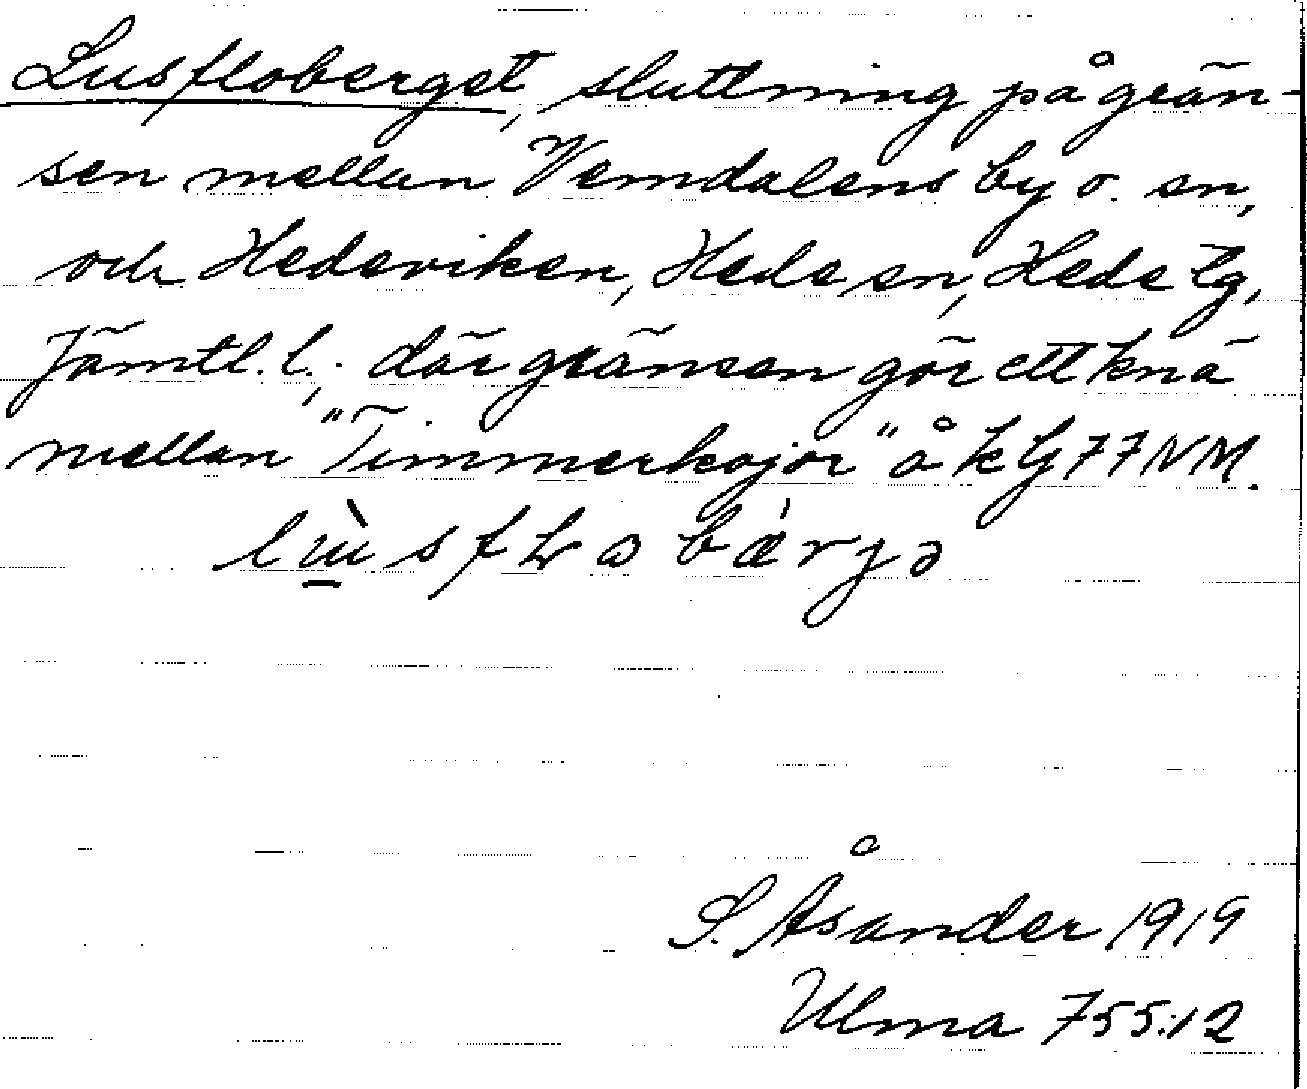 Lusfloberget, sluttning på grän-
sen mellan Vemdalens by o. sn,
och Hedeviken, Hede sn, Hede tg,
Jämtl. l., där gränsen gör ett knä
mellan "Timmerkojor" å kG 77 NM.
S. Åsander 1919
Ulma 755:12